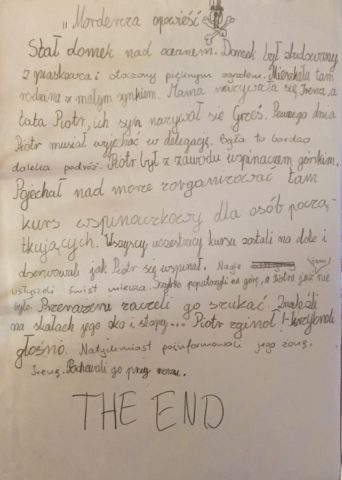 „Mordercza opowieść"
Stał domek nad oceanem. Domek był zbudowany
z piaskowca i otoczony pięknym ogrodem. Mieszkała tam
rodzina z małym synkiem. Mama nazywała się Irena, a
tata Piotr, ich syn nazywał się Grześ. Pewnego dnia
Piotr musiał wyjechać w delegację. Była to bardzo
daleka podróż. Piotr był z zawodu wspinaczem górskim.
Pojechał nad morze zorganizować tam
kurs wspinaczkowy dla osób począ-
tkujących. Wszyscy uczestnicy kursu zostali na dole i
obserwowali jak Piotr się wspinał. Nagle
usłyszeli świst wiatru. Szybko popatrzyli na górę, a Piotra już nie
było. Przerażeni zaczeli go szukać. Znaleźli
na skałach jego oko i stopę... Piotr zginoł!-krzykneli
głośno. Natychmiast poinformowali jego żonę,
Irenę. Pochowali go przy morzu.
THE END